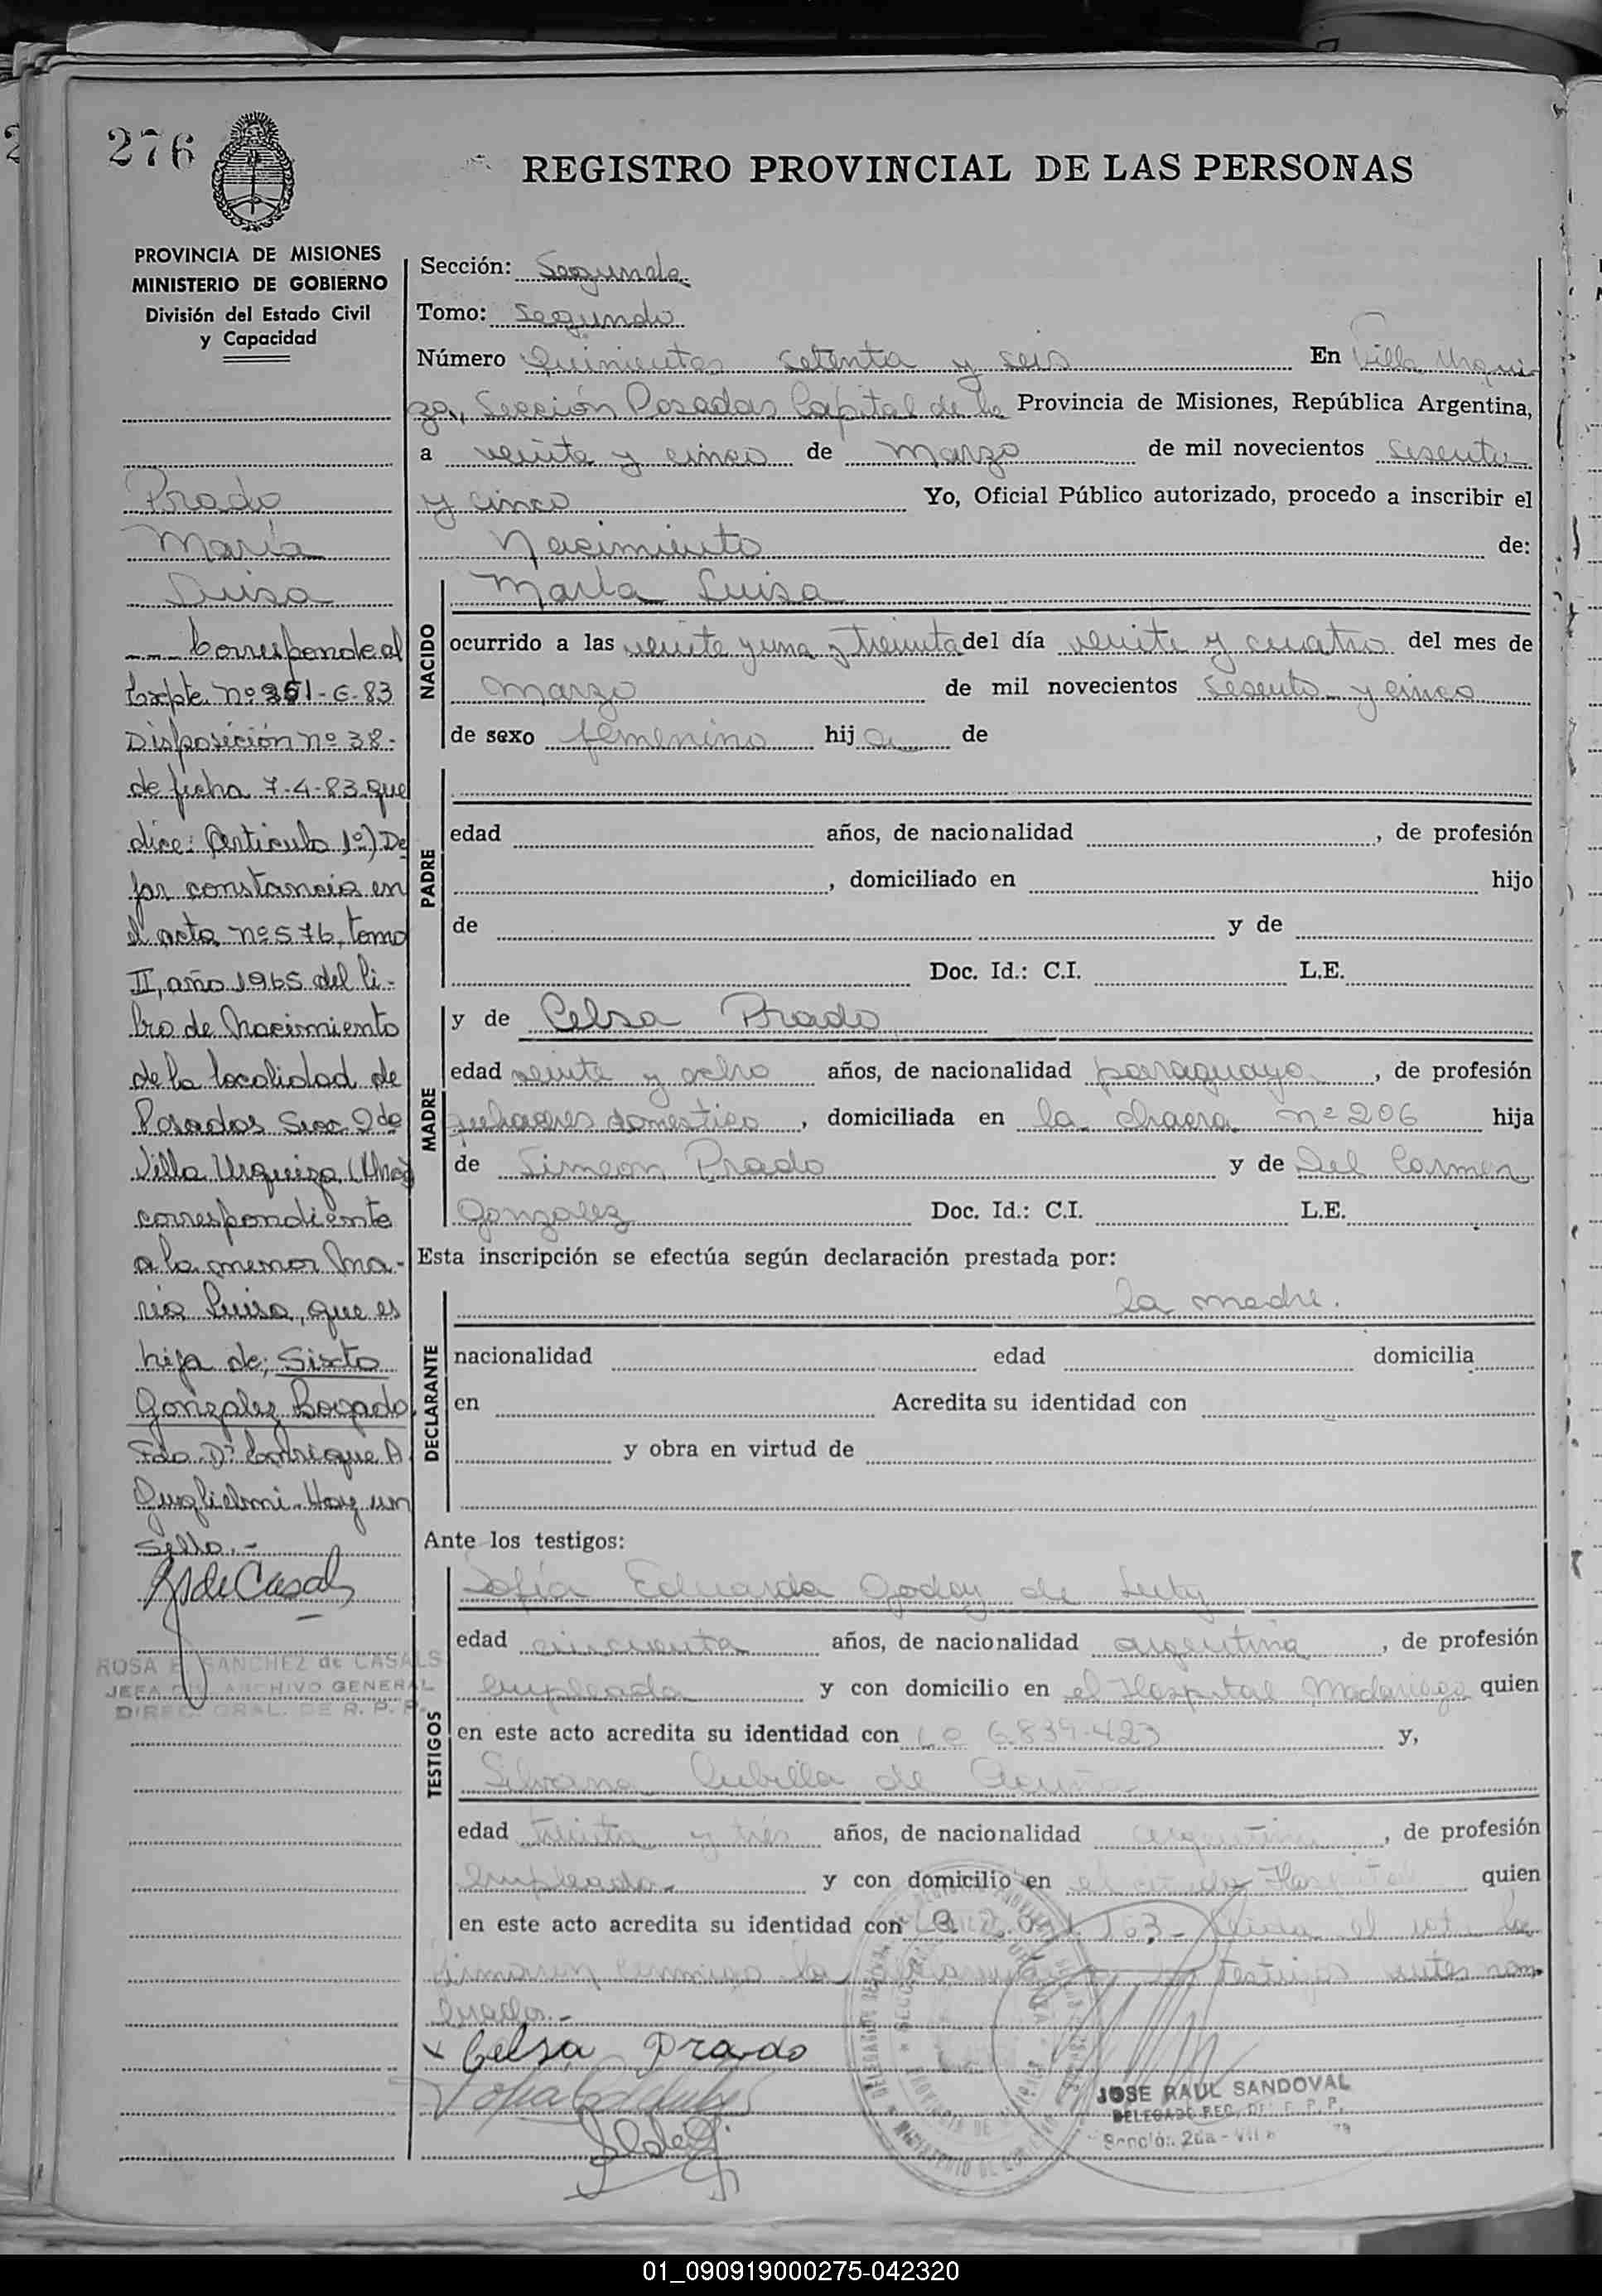 276
REGISTRO PROVINCIAL DE LAS PERSONAS
PROVINCIA DE MISIONES
MINISTERIO DE GOBIERNO
División del Estado Civil
y Capacidad
Prado
María
Luisa
--- Corresponde al
Expte. Nº 351-G-83
Disposición nº 38-
de fecha 7-4-83 que
dice: Artículo 1º) De
jar constancia en
el acta nº 576, tomo
II, año 1965 del li-
bro de Nacimiento
de la localidad de
Posadas Secc. 2da
Villa Urquiza (Mnes)
correspondiente
a la menor Ma-
ría Luisa, que es
hija de: Sixto
González Bogado.
Fdo. Dr. Enrique A
Guglielmi. Hay un
Sello.-
R de Casals
ROSA E. SANCHEZ de CASALS
JEFA DEL ARCHIVO GENERAL
DIREC. GRAL. DE R. P. P.
Sección: Segunda
Tomo: Segundo
Número Quinientos setenta y seis En Villa Urqui
za, Sección Posadas Capital de la Provincia de Misiones, República Argentina,
a veinte y cinco de Marzo de mil novecientos sesenta
y cinco Yo, Oficial Público autorizado, procedo a inscribir el
Nacimiento de:
NACIDO
María Luisa
ocurrido a las veinte y una y treinta del día veinte y cuatro del mes de
Marzo de mil novecientos sesenta y cinco
de sexo femenino hija de
PADRE
edad años, de nacionalidad , de profesión
, domiciliado en hijo
de y de
Doc. Id.: C.I. L.E.
MADRE
y de Celsa Prado
edad veinte y ocho años, de nacionalidad paraguaya , de profesión
quehaceres domestico , domiciliada en la chacra nº 206 hija
de Simeon Prado y de Del Carmen
Gonzalez Doc. Id.: C.I. L.E.
Esta inscripción se efectúa según declaración prestada por:
DECLARANTE
la madre.
nacionalidad edad domicilia
en Acredita su identidad con
y obra en virtud de
Ante los testigos:
TESTIGOS
Sofía Eduarda Godoy de
edad cincuenta años, de nacionalidad argentina , de profesión
empleada y con domicilio en el Hospital Madariaga quien
en este acto acredita su identidad con L C 6.839.423 y,
Silvana Cubilla de Acuña
edad treinta y tres años, de nacionalidad argentina , de profesión
empleada y con domicilio en el citado Hospital quien
en este acto acredita su identidad con el acta la
firman conmigo la testigos antes nom-
brados.-
x Celsa Prado
JOSE RAUL SANDOVAL
DELEGADO REG. DE R. P. P.
Sección 2da - Villa
01_090919000275-042320